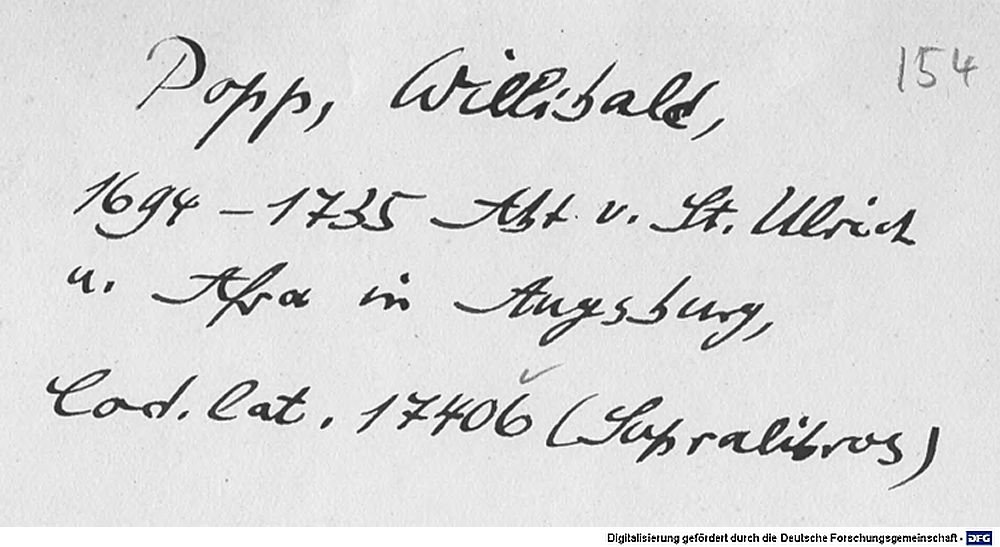 154
Popp, Willibald,
1694 - 1735 Abt v. St. Ulrich
u. Afra in Augsburg,
Cod. lat. 17406 (Supralibros)
Digitalisierung gefördert durch die Deutsche Forschungsgemeinschaft - DFG